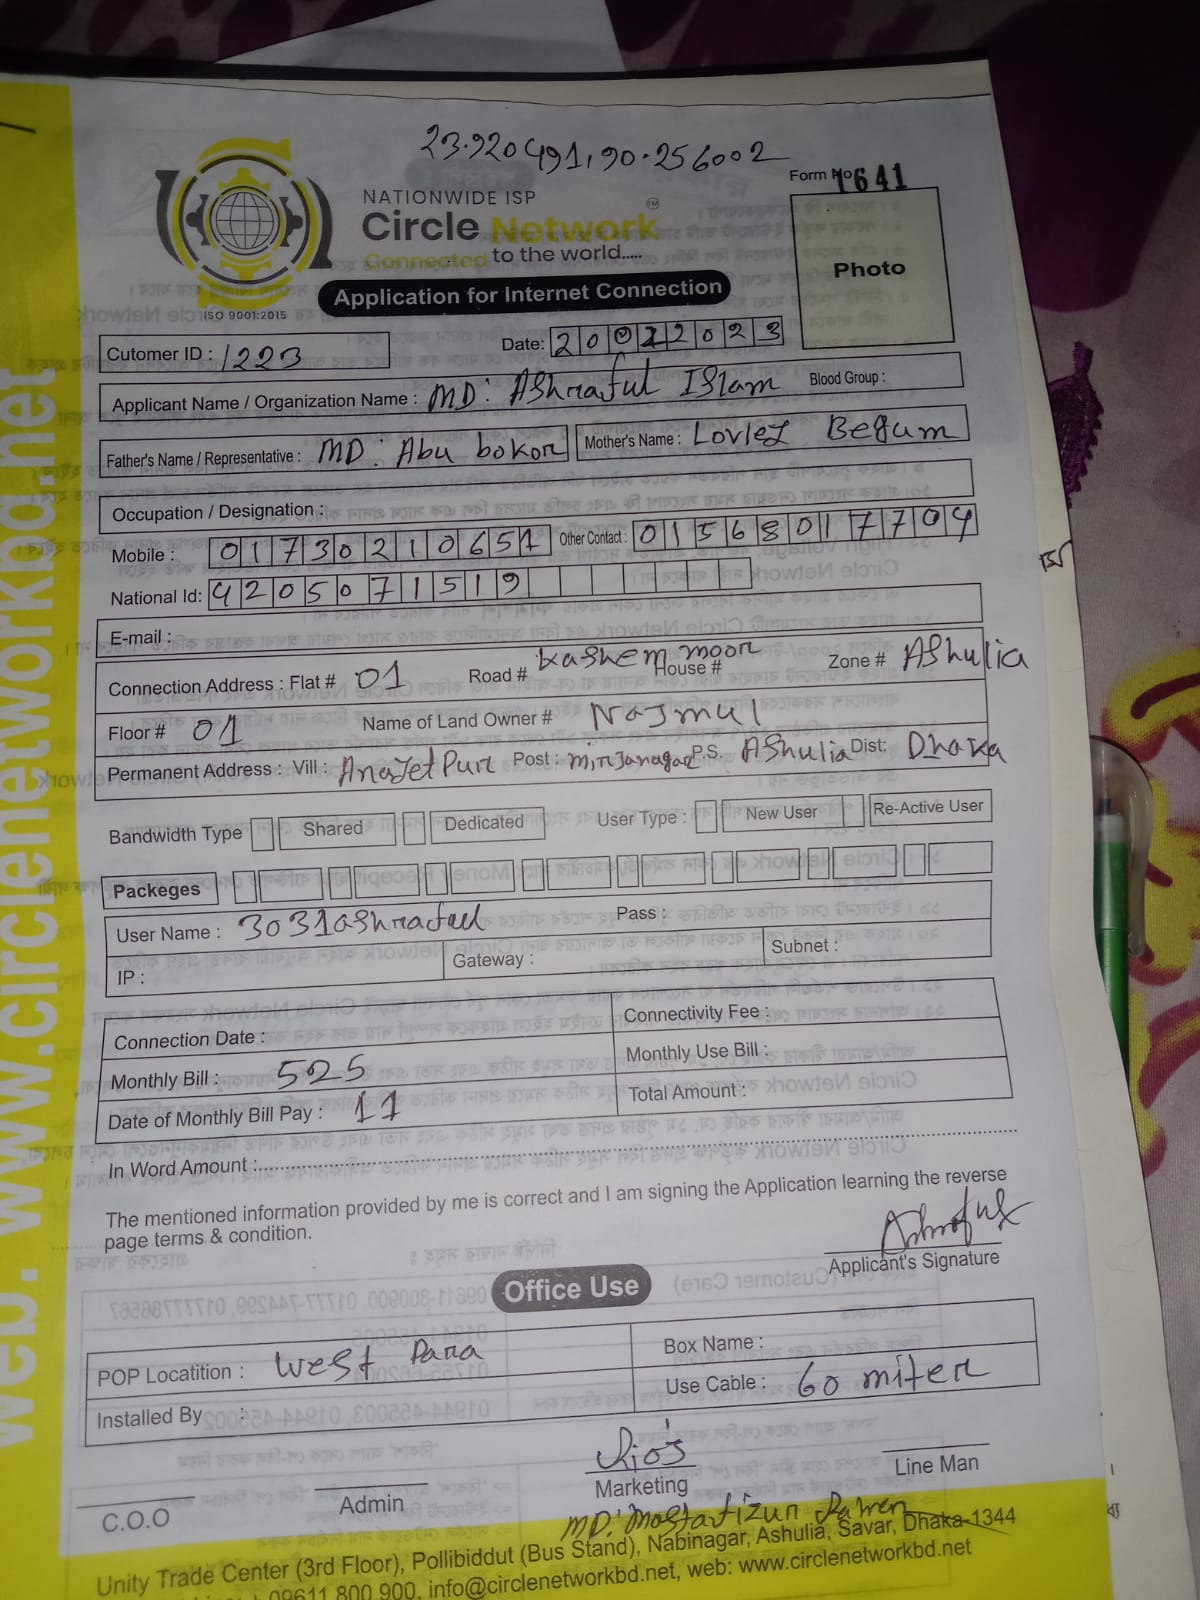 23.920491,90.256002
Form No 1641
NATIONWIDE ISP
Circle Network TM
Connected to the world.....
ISO 9001:2015
Application for Internet Connection
Photo
Cutomer ID : 1223
Date: 20022023
Applicant Name / Organization Name : MD: AShraful ISlam Blood Group :
Father's Name / Representative : MD: Abu bokor Mother's Name : Lovley Begum
Occupation / Designation :
Mobile : 01730210651 Other Contact : 01568017704
National Id: 4205071519
E-mail :
Connection Address : Flat # 01 Road # kashem moor House # Zone # AShulia
Floor # 01 Name of Land Owner # Najmul
Permanent Address : Vill : AnajetPur Post : mirjanagar P.S. AShulia Dist: Dhaka
Bandwidth Type Shared Dedicated User Type : New User Re-Active User
Packeges
User Name : 3031ashraful Pass :
IP : Gateway : Subnet :
Connection Date : Connectivity Fee :
Monthly Bill : 525 Monthly Use Bill :
Date of Monthly Bill Pay : 11 Total Amount :
In Word Amount :
The mentioned information provided by me is correct and I am signing the Application learning the reverse
page terms & condition.
Ashraful
Applicant's Signature
Office Use
POP Locatition : West Para Box Name :
Installed By : Use Cable : 60 miter
C.O.O Admin Marketing Line Man
MD. Mostafizur Rahman
Unity Trade Center (3rd Floor), Pollibiddut (Bus Stand), Nabinagar, Ashulia, Savar, Dhaka-1344
09611 800 900, info@circlenetworkbd.net, web: www.circlenetworkbd.net
web: www.circlenetworkbd.net